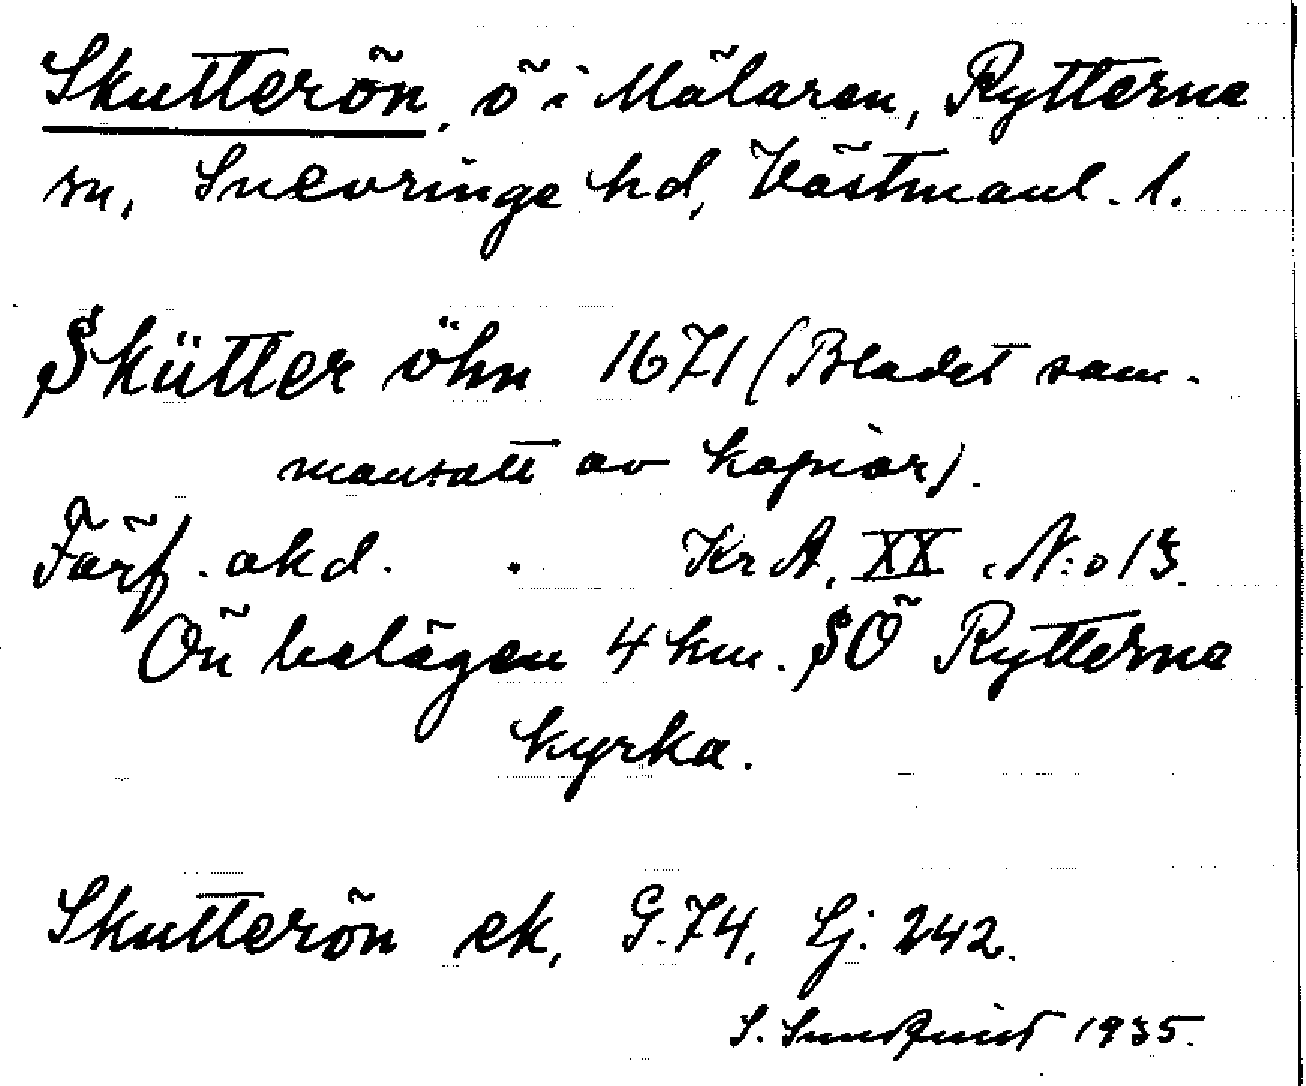 Skutterön, ö i Mälaren, Rytterne
sn, Snevringe hd, Västmanl. l.
Skütter öhn 1671 (Bladet sam-
mansatt av kopior).
Färf. akd. . Kr A, XX, N:o 13.
Ön belägen 4 km. SÖ Rytterne
kyrka.
Skutterön ek, G. 74, Lj: 242.
S. Sundquist 1935.